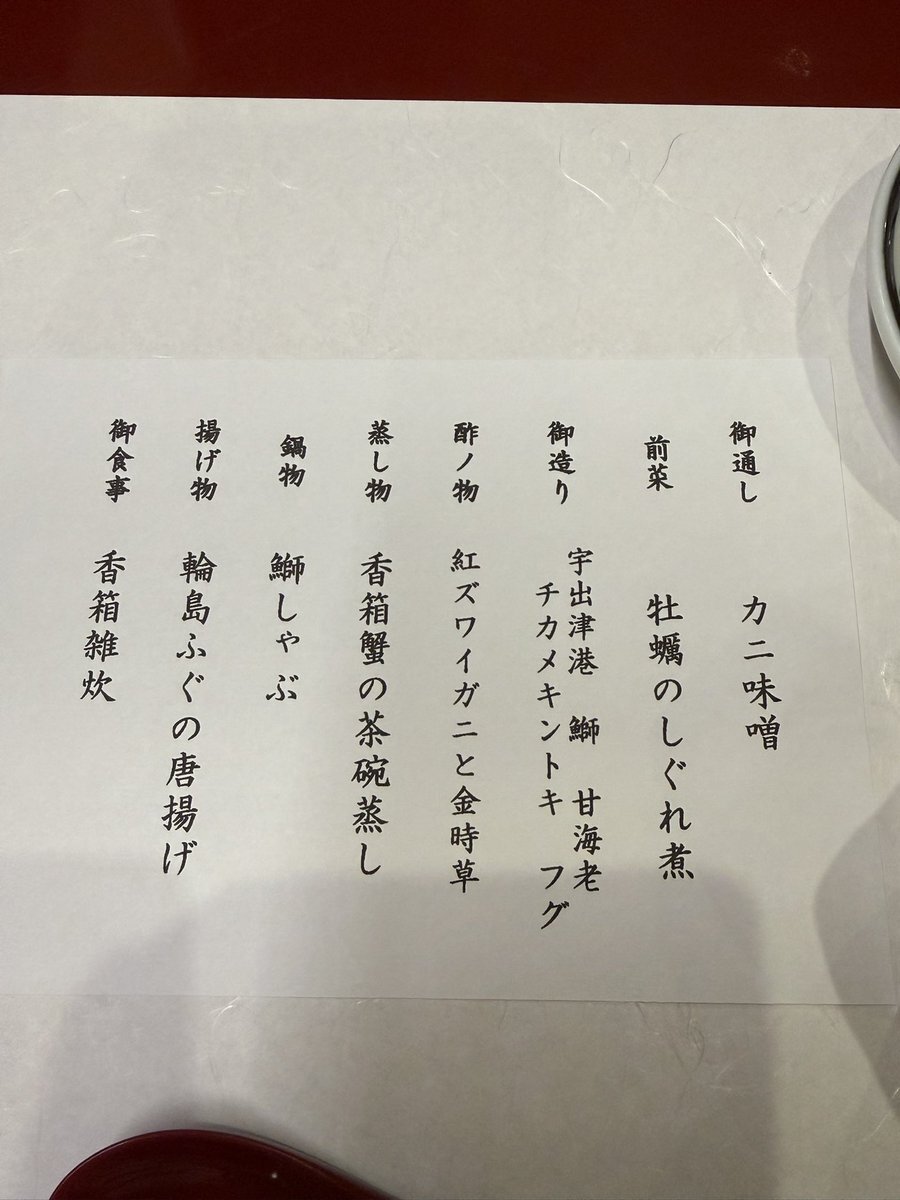 御通し　カニ味噌
前菜　牡蠣のしぐれ煮
御造り　宇出津港　鰤　甘海老
チカメキントキ　フグ
酢ノ物　紅ズワイガニと金時草
蒸し物　香箱蟹の茶碗蒸し
鍋物　鰤しゃぶ
揚げ物　輪島ふぐの唐揚げ
御食事　香箱雑炊